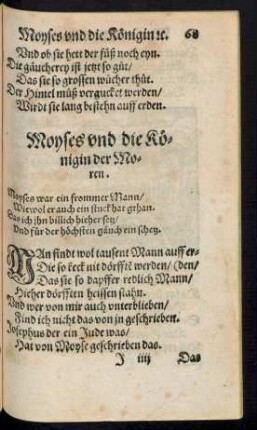 Moyses vnd die Königin ꝛc. 68
Vnd ob sie hett der füß noch eyn.
Die gäucherey ist jetzt so gůt/
Das sie so grossen wůcher thůt.
Der Himel můß vergucket werden/
Wirdt sie lang bestehn auff erden.
Moyses vnd die Kö-
nigin der Mo-
ren.
Moyses war ein frommer Mann/
Wiewol er auch ein stuck hat gethan.
Das ich ihn billich hieher setz/
Vnd für der höchsten gäuch ein schetz.
MAn findt wol tausent Mann auff er-
Die so keck nit dörfft werden/ (den/
Das sie so dapffer redlich Mann/
Hieher dörfften heissen stahn.
Vnd wer von mir auch vnterblieben/
Find ich nicht das von jn geschrieben.
Josephus der ein Jude was/
Hat von Moyse geschrieben das.
J iiij Das